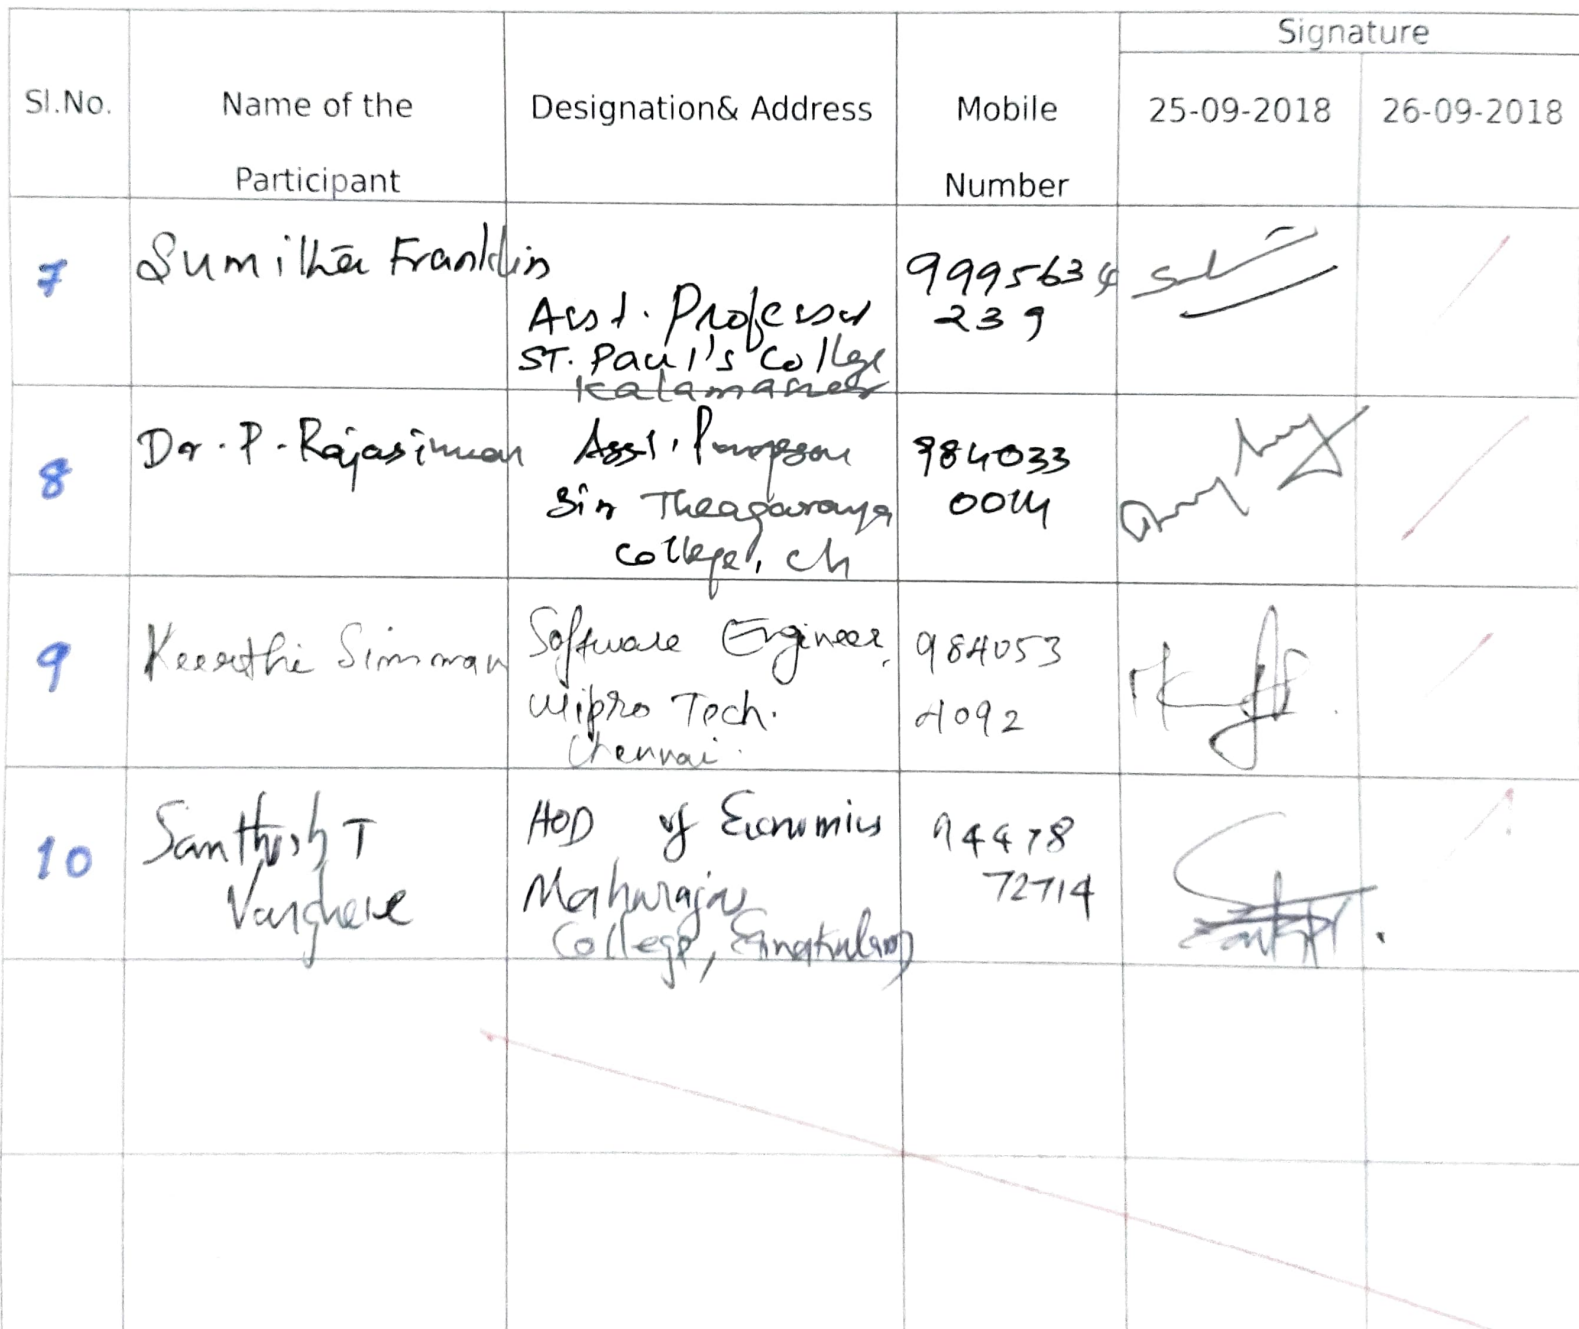 Signature
Sl.No.
Name of the
Participant
Designation& Address
Mobile
Number
25-09-2018
26-09-2018
7
Sumitha Franklin
Asst. Professor
ST. Paul's College
Kalamassery
9995634
239
8
Dr. P. Rajasimman
Asst. Professor
Sir Theagaraya
College, Ch
984033
0014
9
Keerthi Simman
Software Engineer,
Wipro Tech.
Chennai.
984053
4092
10
Santhosh T
Varghese
HOD of Economics
Maharajas
College, Ernakulam
94478
72714